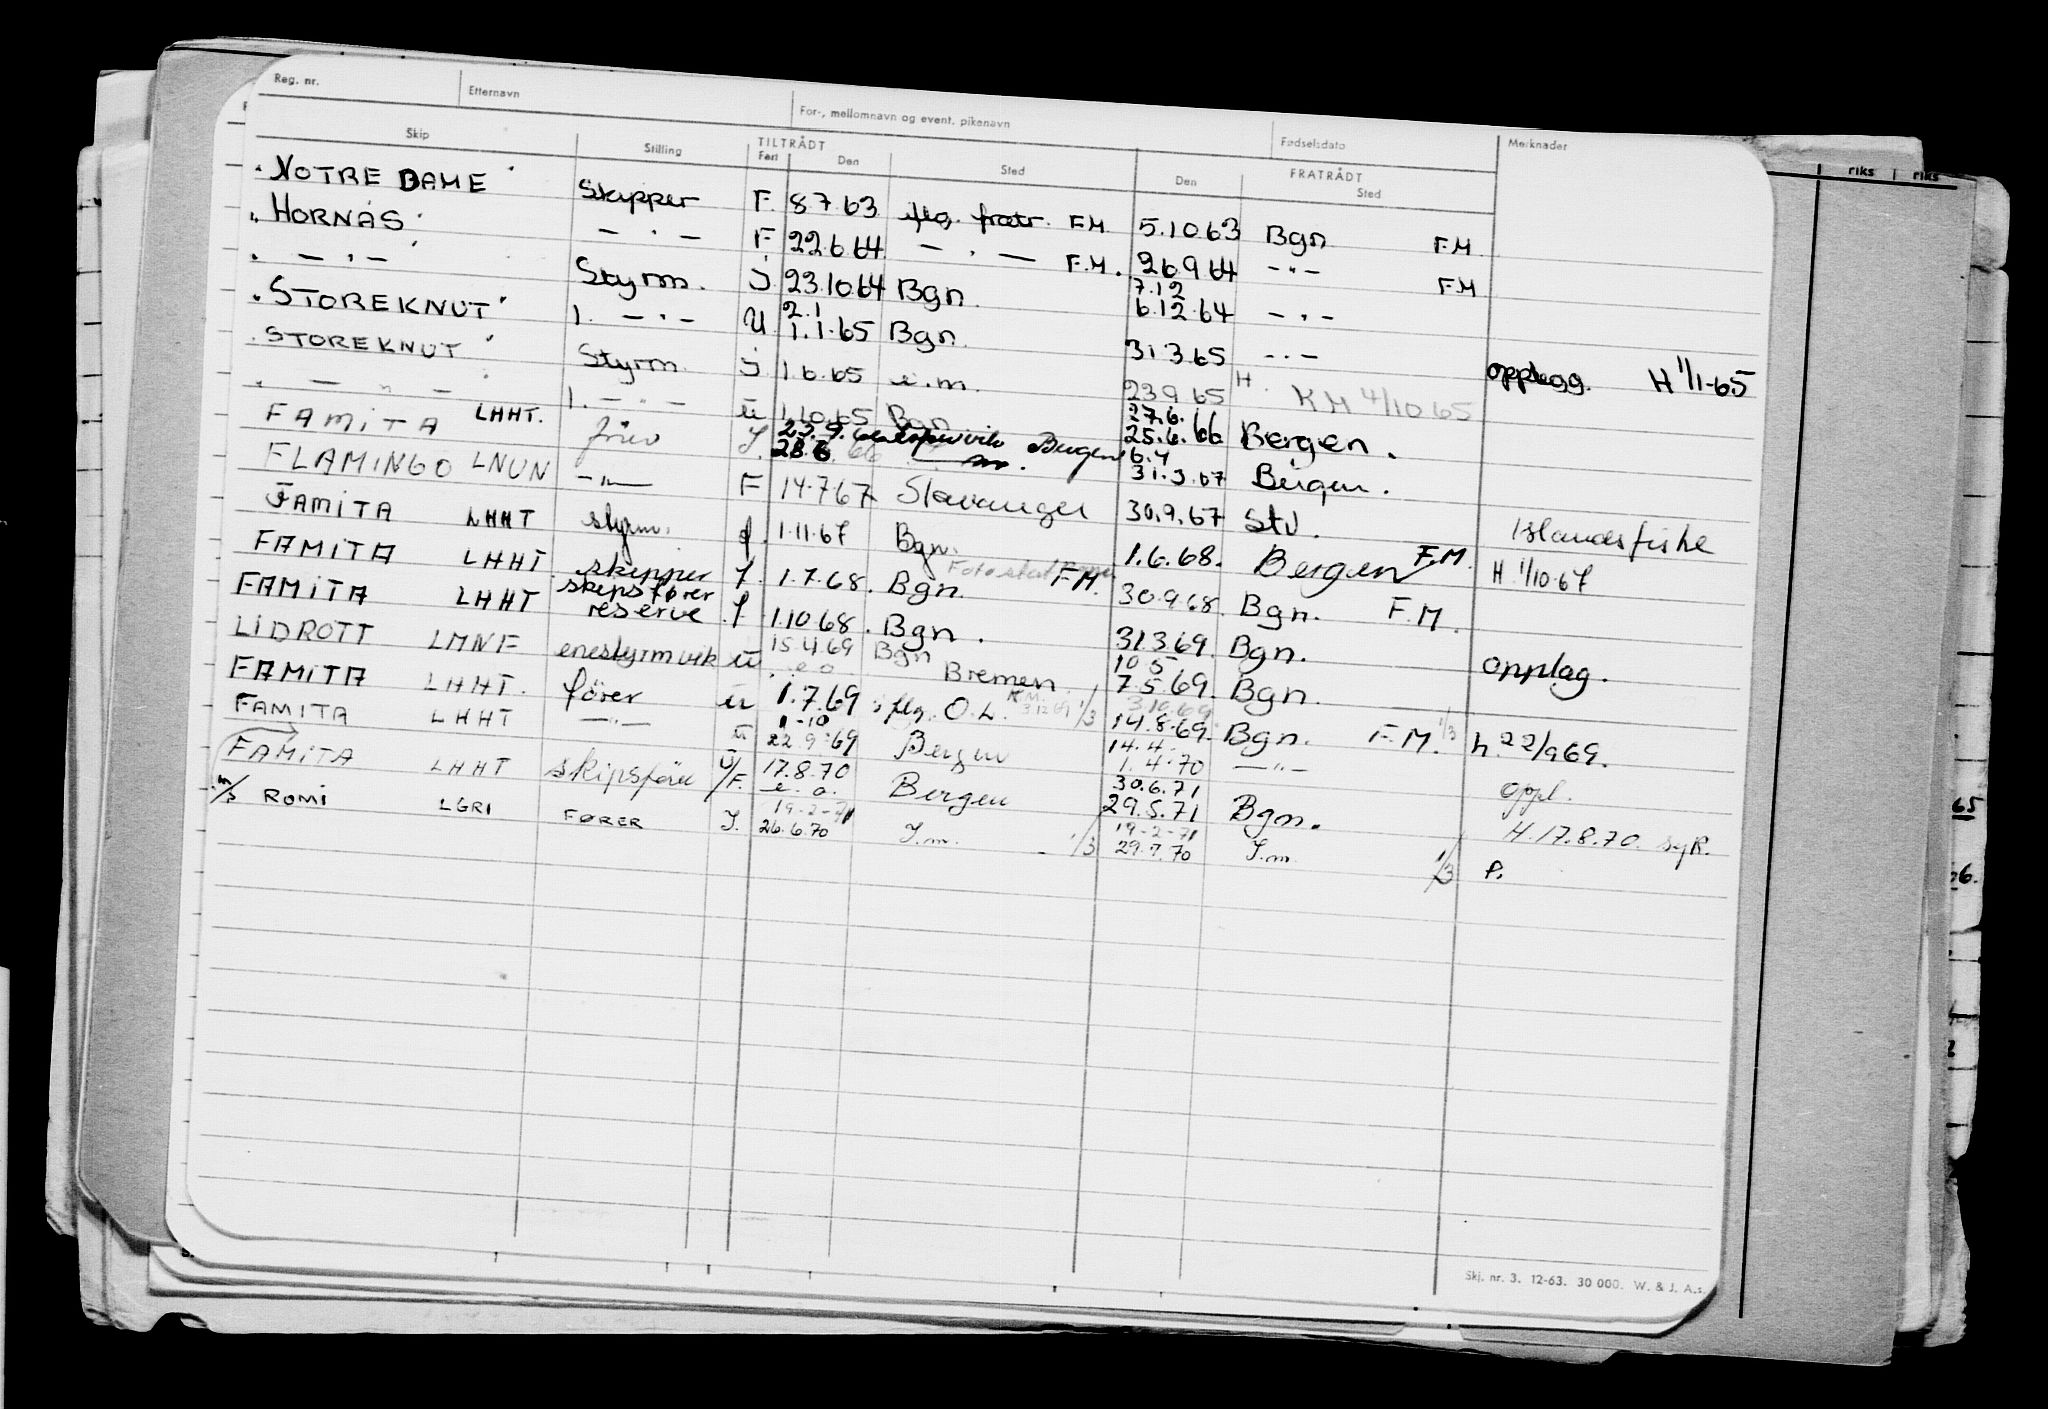 Reg. nr. Etternavn For-, mellomnavn og event. pikenavn Fødselsdato Merknader
Skip Stilling TILTRÅDT FRATRÅDT
Fart Den Sted Den Sted
"NOTRE DAME" Skipper F. 8.7.63 flg. fratr. F.M. 5.10.63 Bgn F.M.
"HORNAS" — " — F 22.6.64 — " — F.M. 26.9.64 — " — F.M
" — " — Styrm. J 23.10.64 Bgn. 7.12 6.12.64 — " —
"STOREKNUT" 1. — " — U 2.1 1.1.65 Bgn. 31.3.65 — " — opplegg. H 1/1-65
"STOREKNUT" Styrm. J 1.6.65 e.m. 23.9.65 H. KM 4/10 65
" — " — 1. — " — U 1.10.65 Bgn 27.6. 25.6.66 Bergen.
FAMITA LHHT. fører J. 28.6.66 Bergen 6.4 31.3.67 Bergen.
FLAMINGO LNUN — " — F 14.7.67 Stavanger 30.9.67 Stv. Islandsfiske
FAMITA LHHT styrm. J. 1.11.67 Bgn. 1.6.68. Bergen F.M. H 1/10.67
FAMITA LHHT. skipper J. 1.7.68. Bgn. F.M. 30.9.68. Bgn. F.M.
FAMITA LHHT skipsfører reserve J. 1.10.68. Bgn. 31.3.69. Bgn. opplag.
LIDROTT LMNF enestyrm vik U 15.4.69 Bgn Bremen. 10 5 7.5.69. Bgn.
FAMITA LHHT. fører U 1.7.69 flg. O.L. 1/3 3.10.69 14.8.69. Bgn. F.M. 1/3 h. 22/9 69.
FAMITA LHHT — " — U 1-10 22.9.69 Bergen 14.4. 1.4.70 — " — oppl.
FAMITA LHHT skipsfører U/F. 17.8.70 e.o. Bergen 30.6.71 29.5.71 Bgn. H. 17.8.70. syk.
M/S ROMI LGRI FØRER J. 19-2-71 26.6.70 J.m. 1/3 19-2-71 29.7.70 J.m. 1/3 P.
Skj. nr. 3. 12-63. 30 000. W. & J. A.s.
riks riks
65
26.